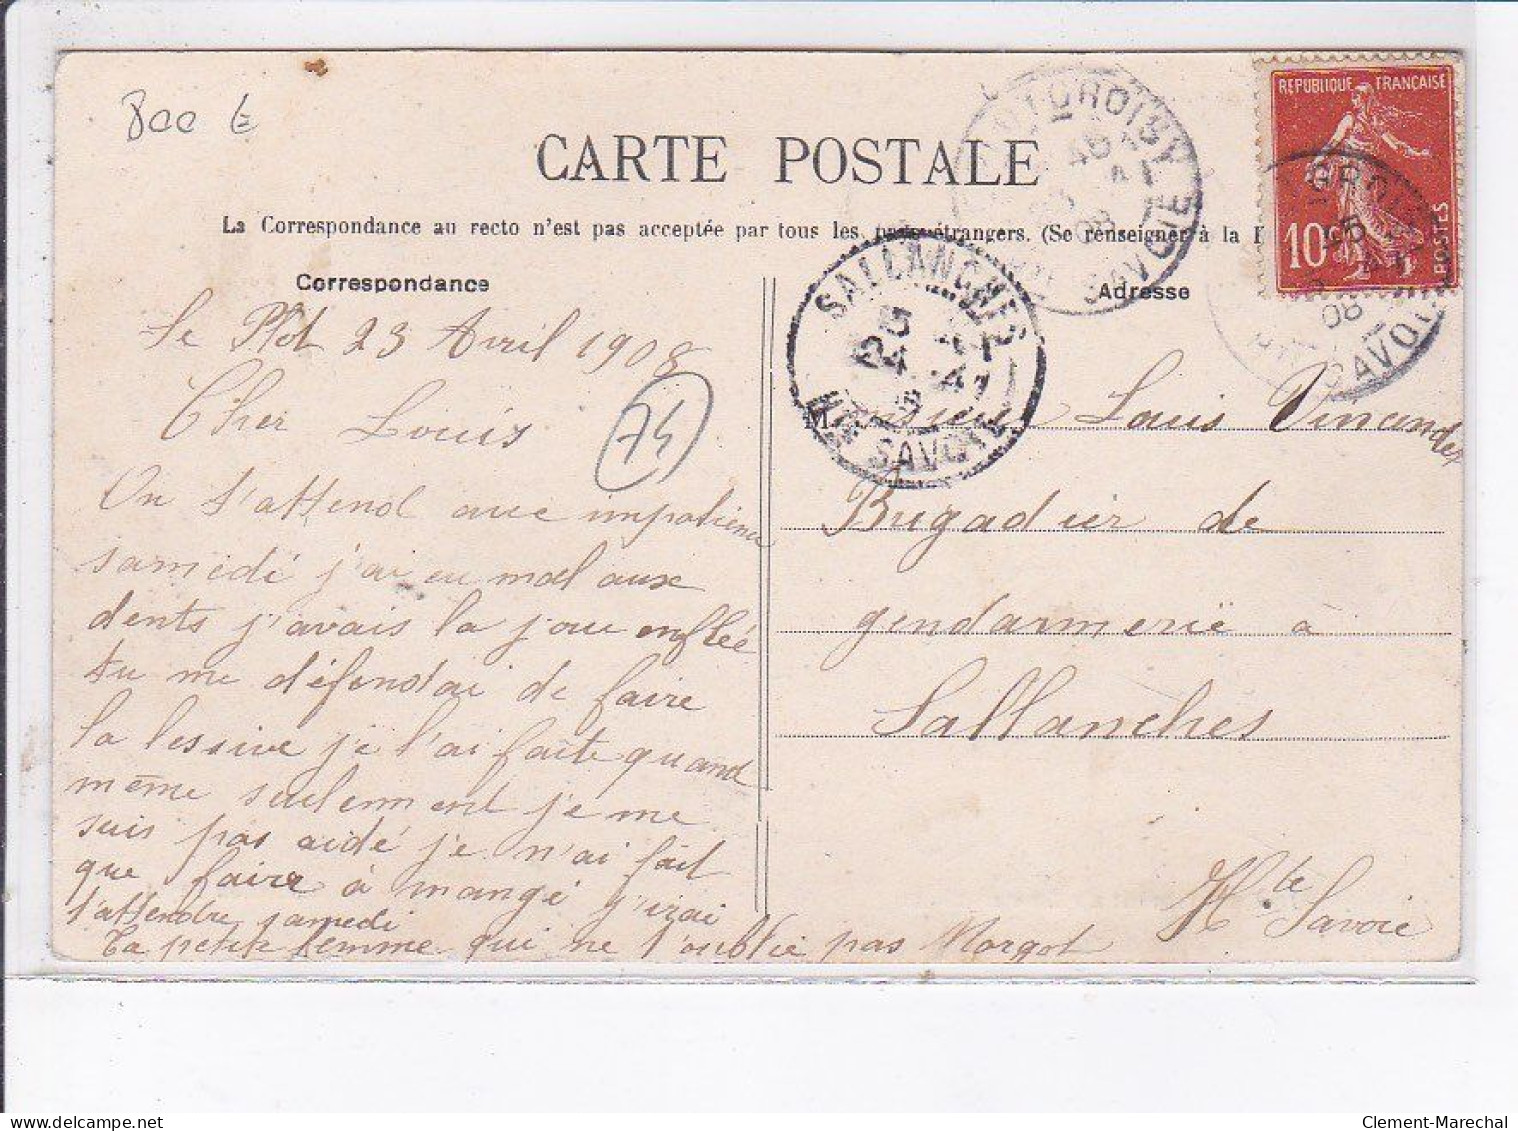 800 €
CARTE POSTALE
La Correspondance au recto n'est pas acceptée par tous les pays étrangers. (Se renseigner à la
Correspondance
Adresse
RÉPUBLIQUE FRANÇAISE
10c
POSTES
GROISY
45
08
HTE SAVOIE
GROISY LE
45
08
HTE SAVOIE
SALLANCHES
24 - 4
HTE SAVOIE
Le Plot 23 Avril 1908
74
Cher Louis
On t'attend avec impatience
samedi j'ai eu mal aux
dents j'avais la joue enflée
tu me défendai de faire
la lessive je l'ai faite quand
même seulemment je me
suis pas aidé je n'ai fait
que faire à mangé j'irai
t'attendre samedi
Ta petite femme qui ne t'oublie pas Margot
Monsieur Louis
Brigadier de
gendarmerië à
Sallanches
Hte Savoie
Clement-Marechal
www.delcampe.net